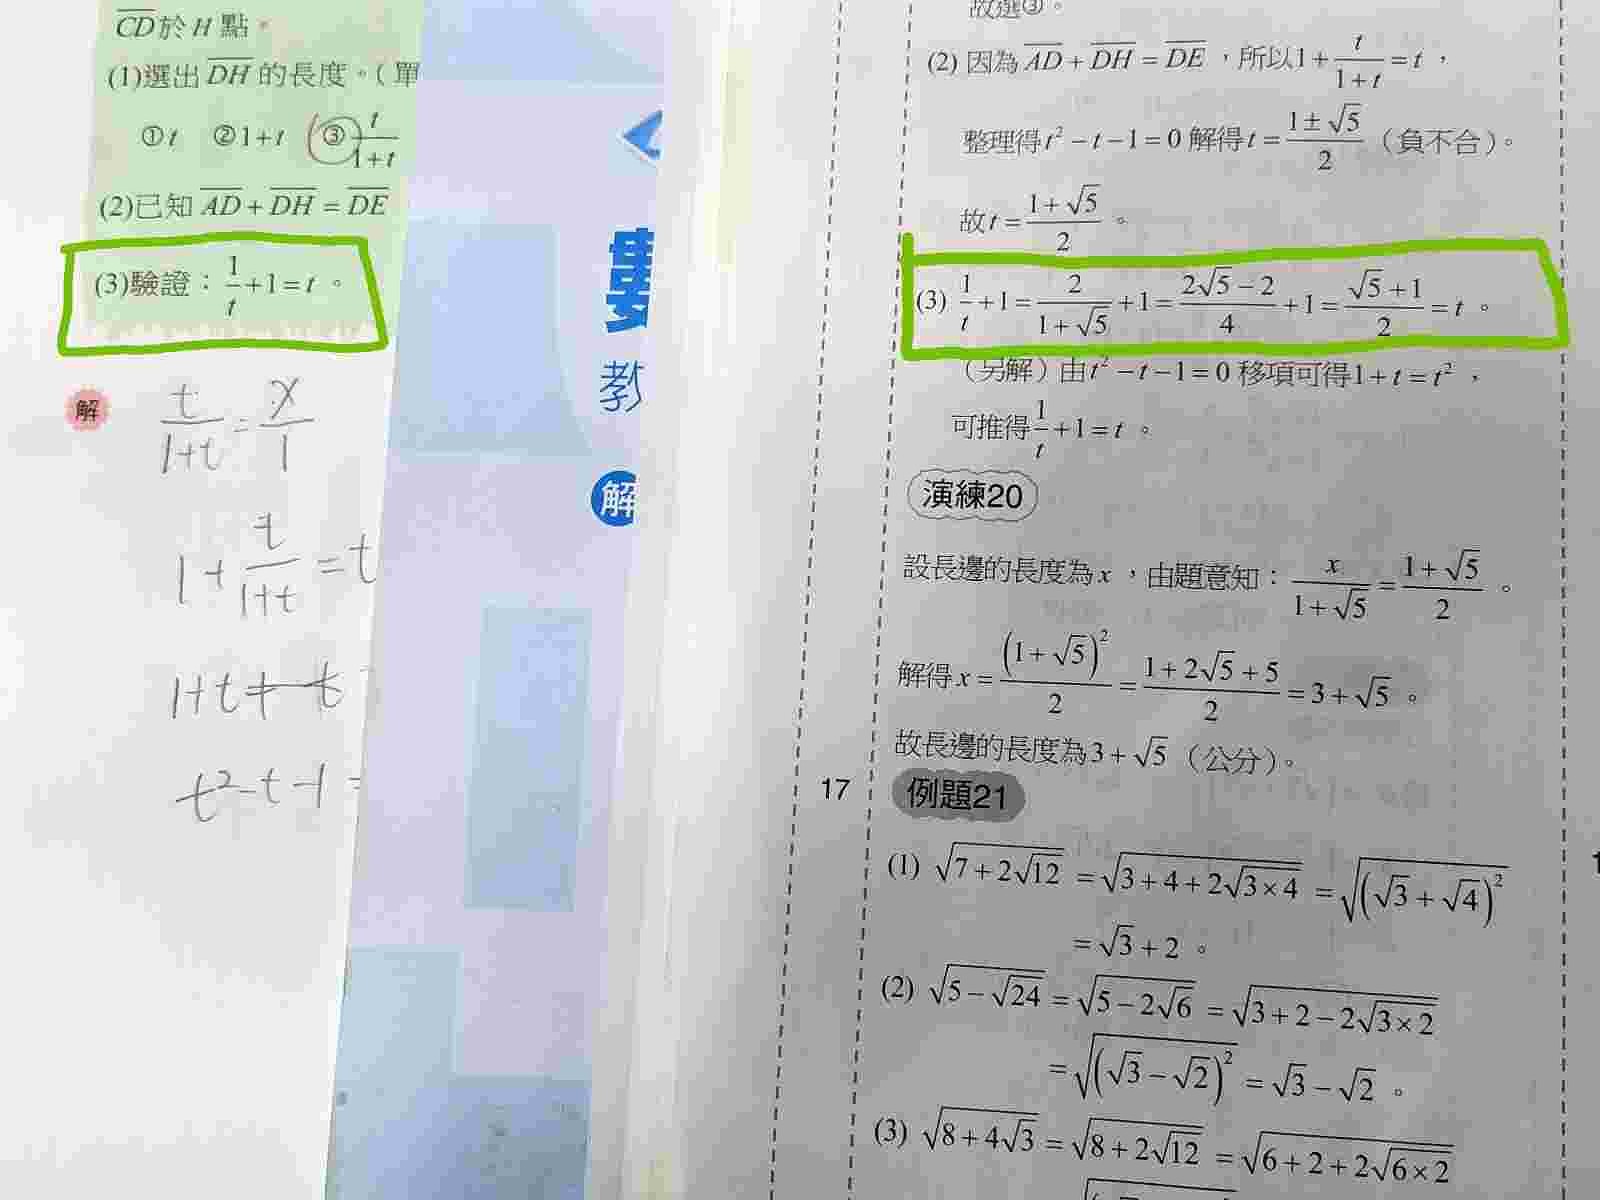 CD於 H 點。
(1)選出 DH 的長度。(單
① t ② 1+t ③ t/(1+t)
(2)已知 AD + DH = DE
(3)驗證：1/t + 1 = t 。
解
t/(1+t) = x/1
1 + t/(1+t) = t
1+t+t
t²-t-1=
教
解
故選③。
(2) 因為 AD + DH = DE ，所以 1 + t/(1+t) = t ，
整理得 t² − t − 1 = 0 解得 t = (1±√5)/2 （負不合）。
故 t = (1+√5)/2 。
(3) 1/t + 1 = 2/(1+√5) + 1 = (2√5−2)/4 + 1 = (√5+1)/2 = t 。
（另解）由 t² − t − 1 = 0 移項可得 1 + t = t² ，
可推得 1/t + 1 = t 。
演練20
設長邊的長度為 x ，由題意知：x/(1+√5) = (1+√5)/2 。
解得 x = (1+√5)²/2 = (1+2√5+5)/2 = 3+√5 。
故長邊的長度為 3+√5 （公分）。
17
例題21
(1) √(7+2√12) = √(3+4+2√(3×4)) = √((√3+√4)²)
= √3 + 2 。
(2) √(5−√24) = √(5−2√6) = √(3+2−2√(3×2))
= √((√3−√2)²) = √3 − √2 。
(3) √(8+4√3) = √(8+2√12) = √(6+2+2√(6×2))